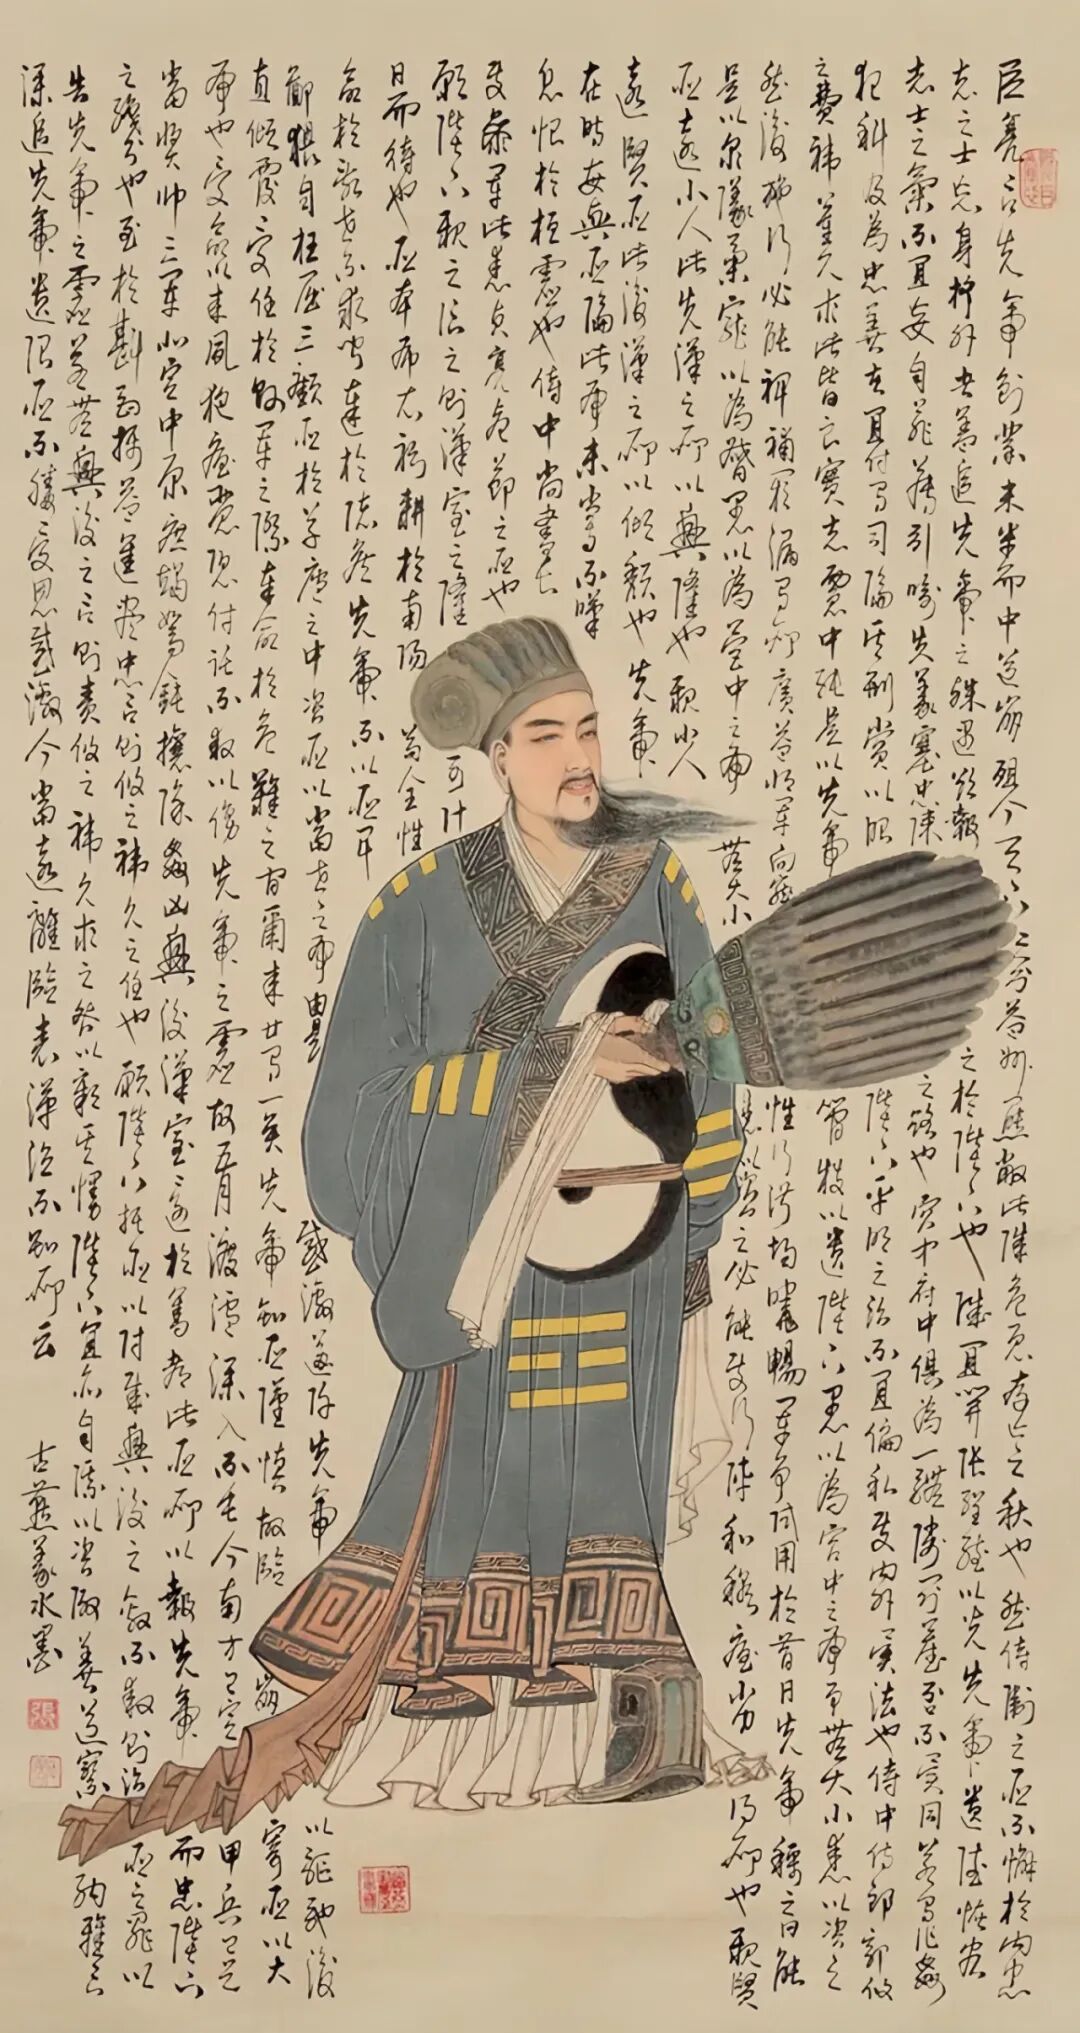 臣亮言先帝創業未半而中道崩殂今天下三分益州疲敝此誠危急存亡之秋也然侍衛之臣不懈於內忠
志之士忘身於外者蓋追先帝之殊遇欲報之於陛下也誠宜開張聖聽以光先帝遺德恢宏
志士之氣不宜妄自菲薄引喻失義塞忠諫之路也宮中府中俱為一體陟罰臧否不宜異同若有作姦
犯科及為忠善者宜付有司論其刑賞以昭陛下平明之治不宜偏私使內外異法也侍中侍郎郭攸
之費禕董允等此皆良實志慮忠純是以先帝簡拔以遺陛下愚以為宮中之事事無大小悉以咨之
然後施行必能裨補闕漏有所廣益將軍向寵性行淑均曉暢軍事試用於昔日先帝稱之曰能
是以眾議舉寵以為督愚以為營中之事無大小悉以咨之必能使行陣和穆優劣得所也親賢
臣遠小人此先漢之所以興隆也親小人
遠賢臣此後漢之所以傾頹也先帝
在時每與臣論此事未嘗不嘆
息恨於桓靈也侍中尚書長
史參軍此悉貞亮死節之臣也
願陛下親之信之則漢室之隆可計
日而待也臣本布衣躬耕於南陽苟全性
命於亂世不求聞達於諸侯先帝不以臣卑
鄙猥自枉屈三顧臣於草廬之中咨臣以當世之事由是感激遂許先帝以驅馳後
直傾覆受任於敗軍之際奉命於危難之間爾來廿有一矣先帝知臣謹慎故臨崩寄臣以大
事也受命以來夙夜憂恐付託不效以傷先帝之靈故五月渡瀘深入不毛今南方已定甲兵已足
當獎帥三軍北定中原庶竭駑鈍攘除姦凶興復漢室還於舊都此臣所以報先帝而忠陛下
之職分也至於斟酌損益進盡忠言則攸之禕允之任也願陛下托臣以討賊興復之效不效則治臣之罪以
告先帝之靈若無興復之言則責攸之禕允等之咎以彰其慢陛下宜亦自謀以咨諏善道察納雅言
深追先帝遺詔臣不勝受恩感激今當遠離臨表涕泣不知所云
古燕蒙水墨
張